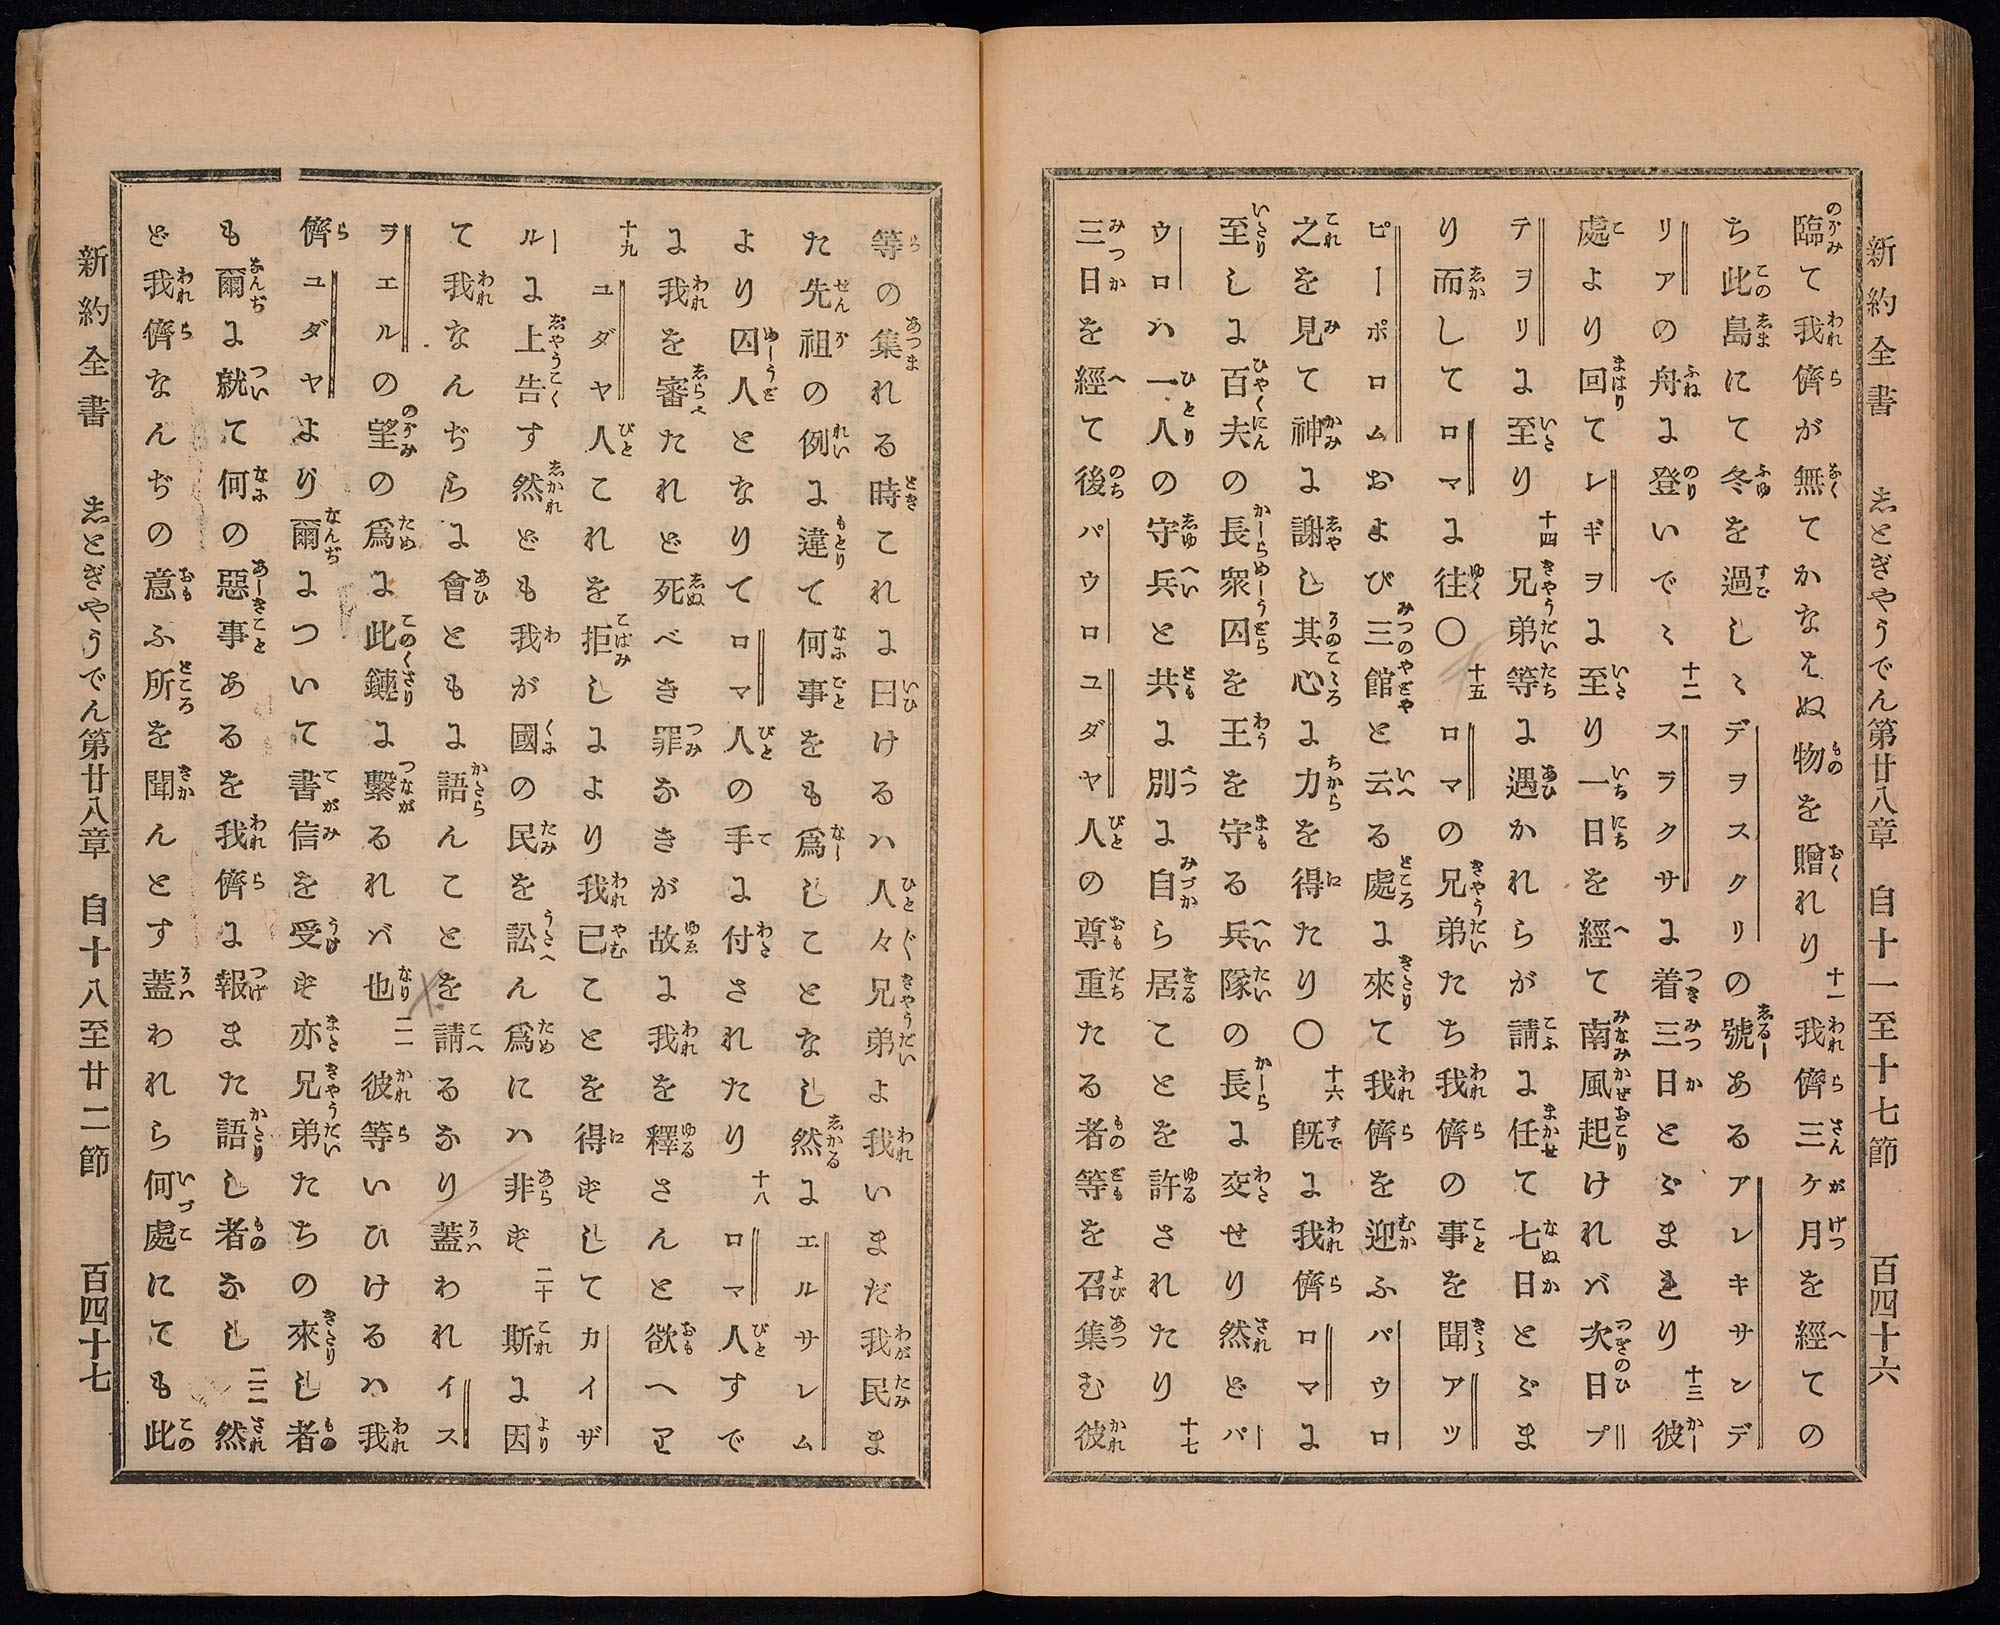 新約全書　志とぎやうでん第廿八章　自十一至十七節　百四十六
臨て我儕が無てかなはぬ物を贈れり十一我儕三ケ月を經ての
ち此島にて冬を過しゝデヲスクリの號あるアレキサンデ
リアの舟に登いでゝ十二スラクサに着三日とゞまれり十三彼
處より回てレギヲに至り一日を經て南風起ければ次日プ
テヲリに至り十四兄弟等に遇かれらが請に任て七日とゞま
り而してロマに往〇十五ロマの兄弟たち我儕の事を聞アッ
ピーポロムおよび三館と云る處に來て我儕を迎ふパウロ
之を見て神に謝し其心に力を得たり〇十六既に我儕ロマに
至しに百夫の長衆囚を王を守る兵隊の長に交せり然どパ
ウロハ一人の守兵と共に別に自ら居ことを許されたり十七
三日を經て後パウロユダヤ人の尊重たる者等を召集む彼
等の集れる時これに曰けるハ人々兄弟よ我いまだ我民ま
た先祖の例に違て何事をも爲しことなし然にエルサレム
より囚人となりてロマ人の手に付されたり十八ロマ人すで
に我を審たれど死べき罪なきが故に我を釋さんと欲へり
十九ユダヤ人これを拒しにより我已ことを得ずしてカイザ
ルに上告す然ども我が國の民を訟ん爲にハ非ず二十斯に因
て我なんぢらに會ともに語んことを請るなり蓋われイス
ヲエルの望の爲に此鏈に繫るれバ也二一彼等いひけるハ我
儕ユダヤより爾について書信を受ず亦兄弟たちの來し者
も爾に就て何の惡事あるを我儕に報また語し者なし二二然
ど我儕なんぢの意ふ所を聞んとす蓋われら何處にても此
新約全書　志とぎやうでん第廿八章　自十八至廿二節　百四十七